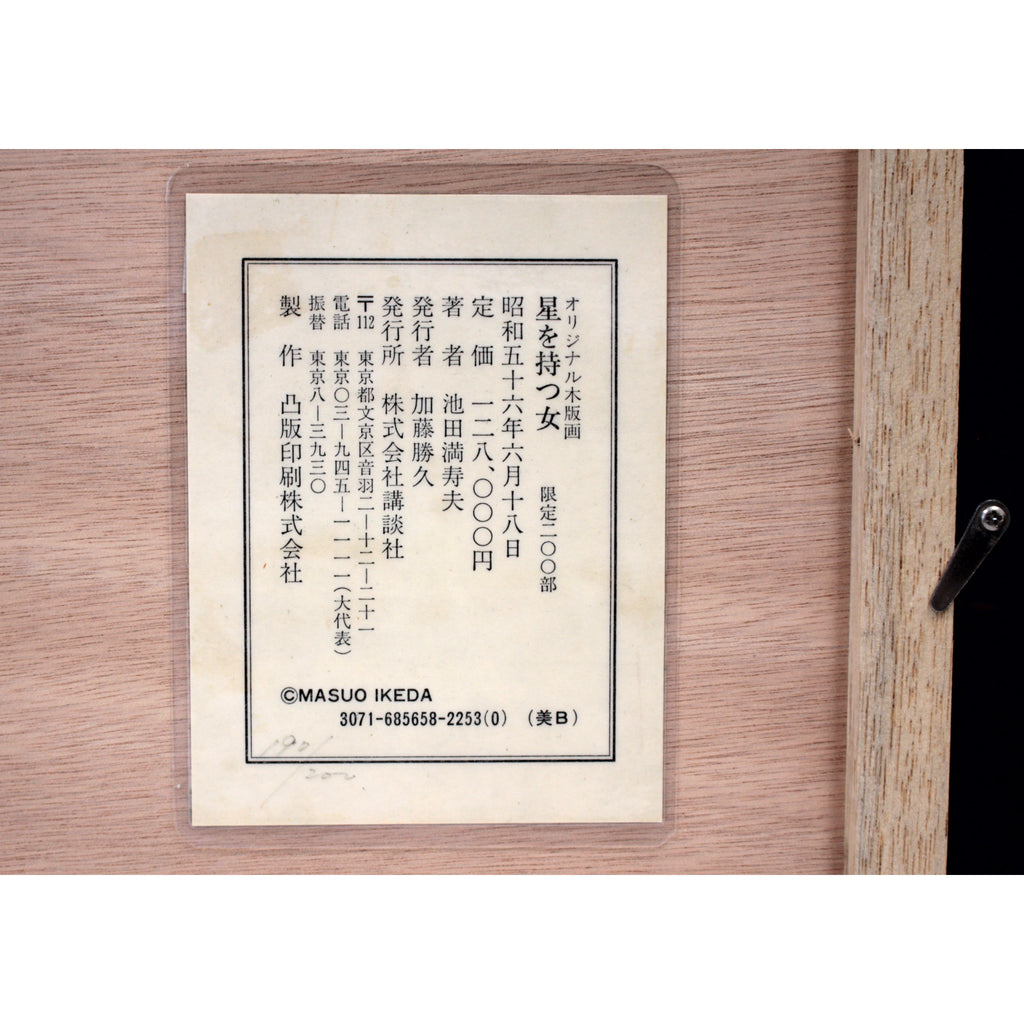 オリジナル木版画
星を持つ女 限定二〇〇部
昭和五十六年六月十八日
定価 一二八、〇〇〇円
著者 池田満寿夫
発行者 加藤勝久
発行所 株式会社講談社
〒112 東京都文京区音羽二ー十二ー二十一
電話 東京〇三ー九四五ー一一一一(大代表)
振替 東京八ー三九三〇
製作 凸版印刷株式会社
©MASUO IKEDA
3071-685658-2253(0) (美B)
190/200